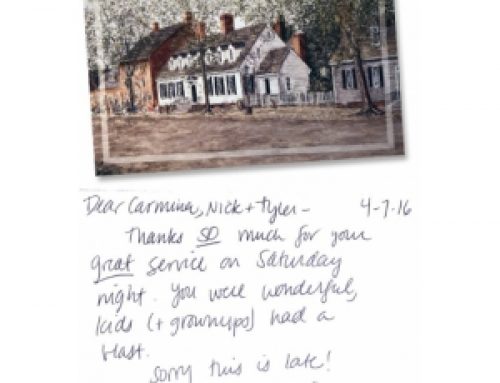 Dear Carmina, Nick + Tyler - 4-7-16
Thanks SO much for your
great service on Saturday
night. You were wonderful,
kids (+ grownups) had a
blast.
Sorry this is late!